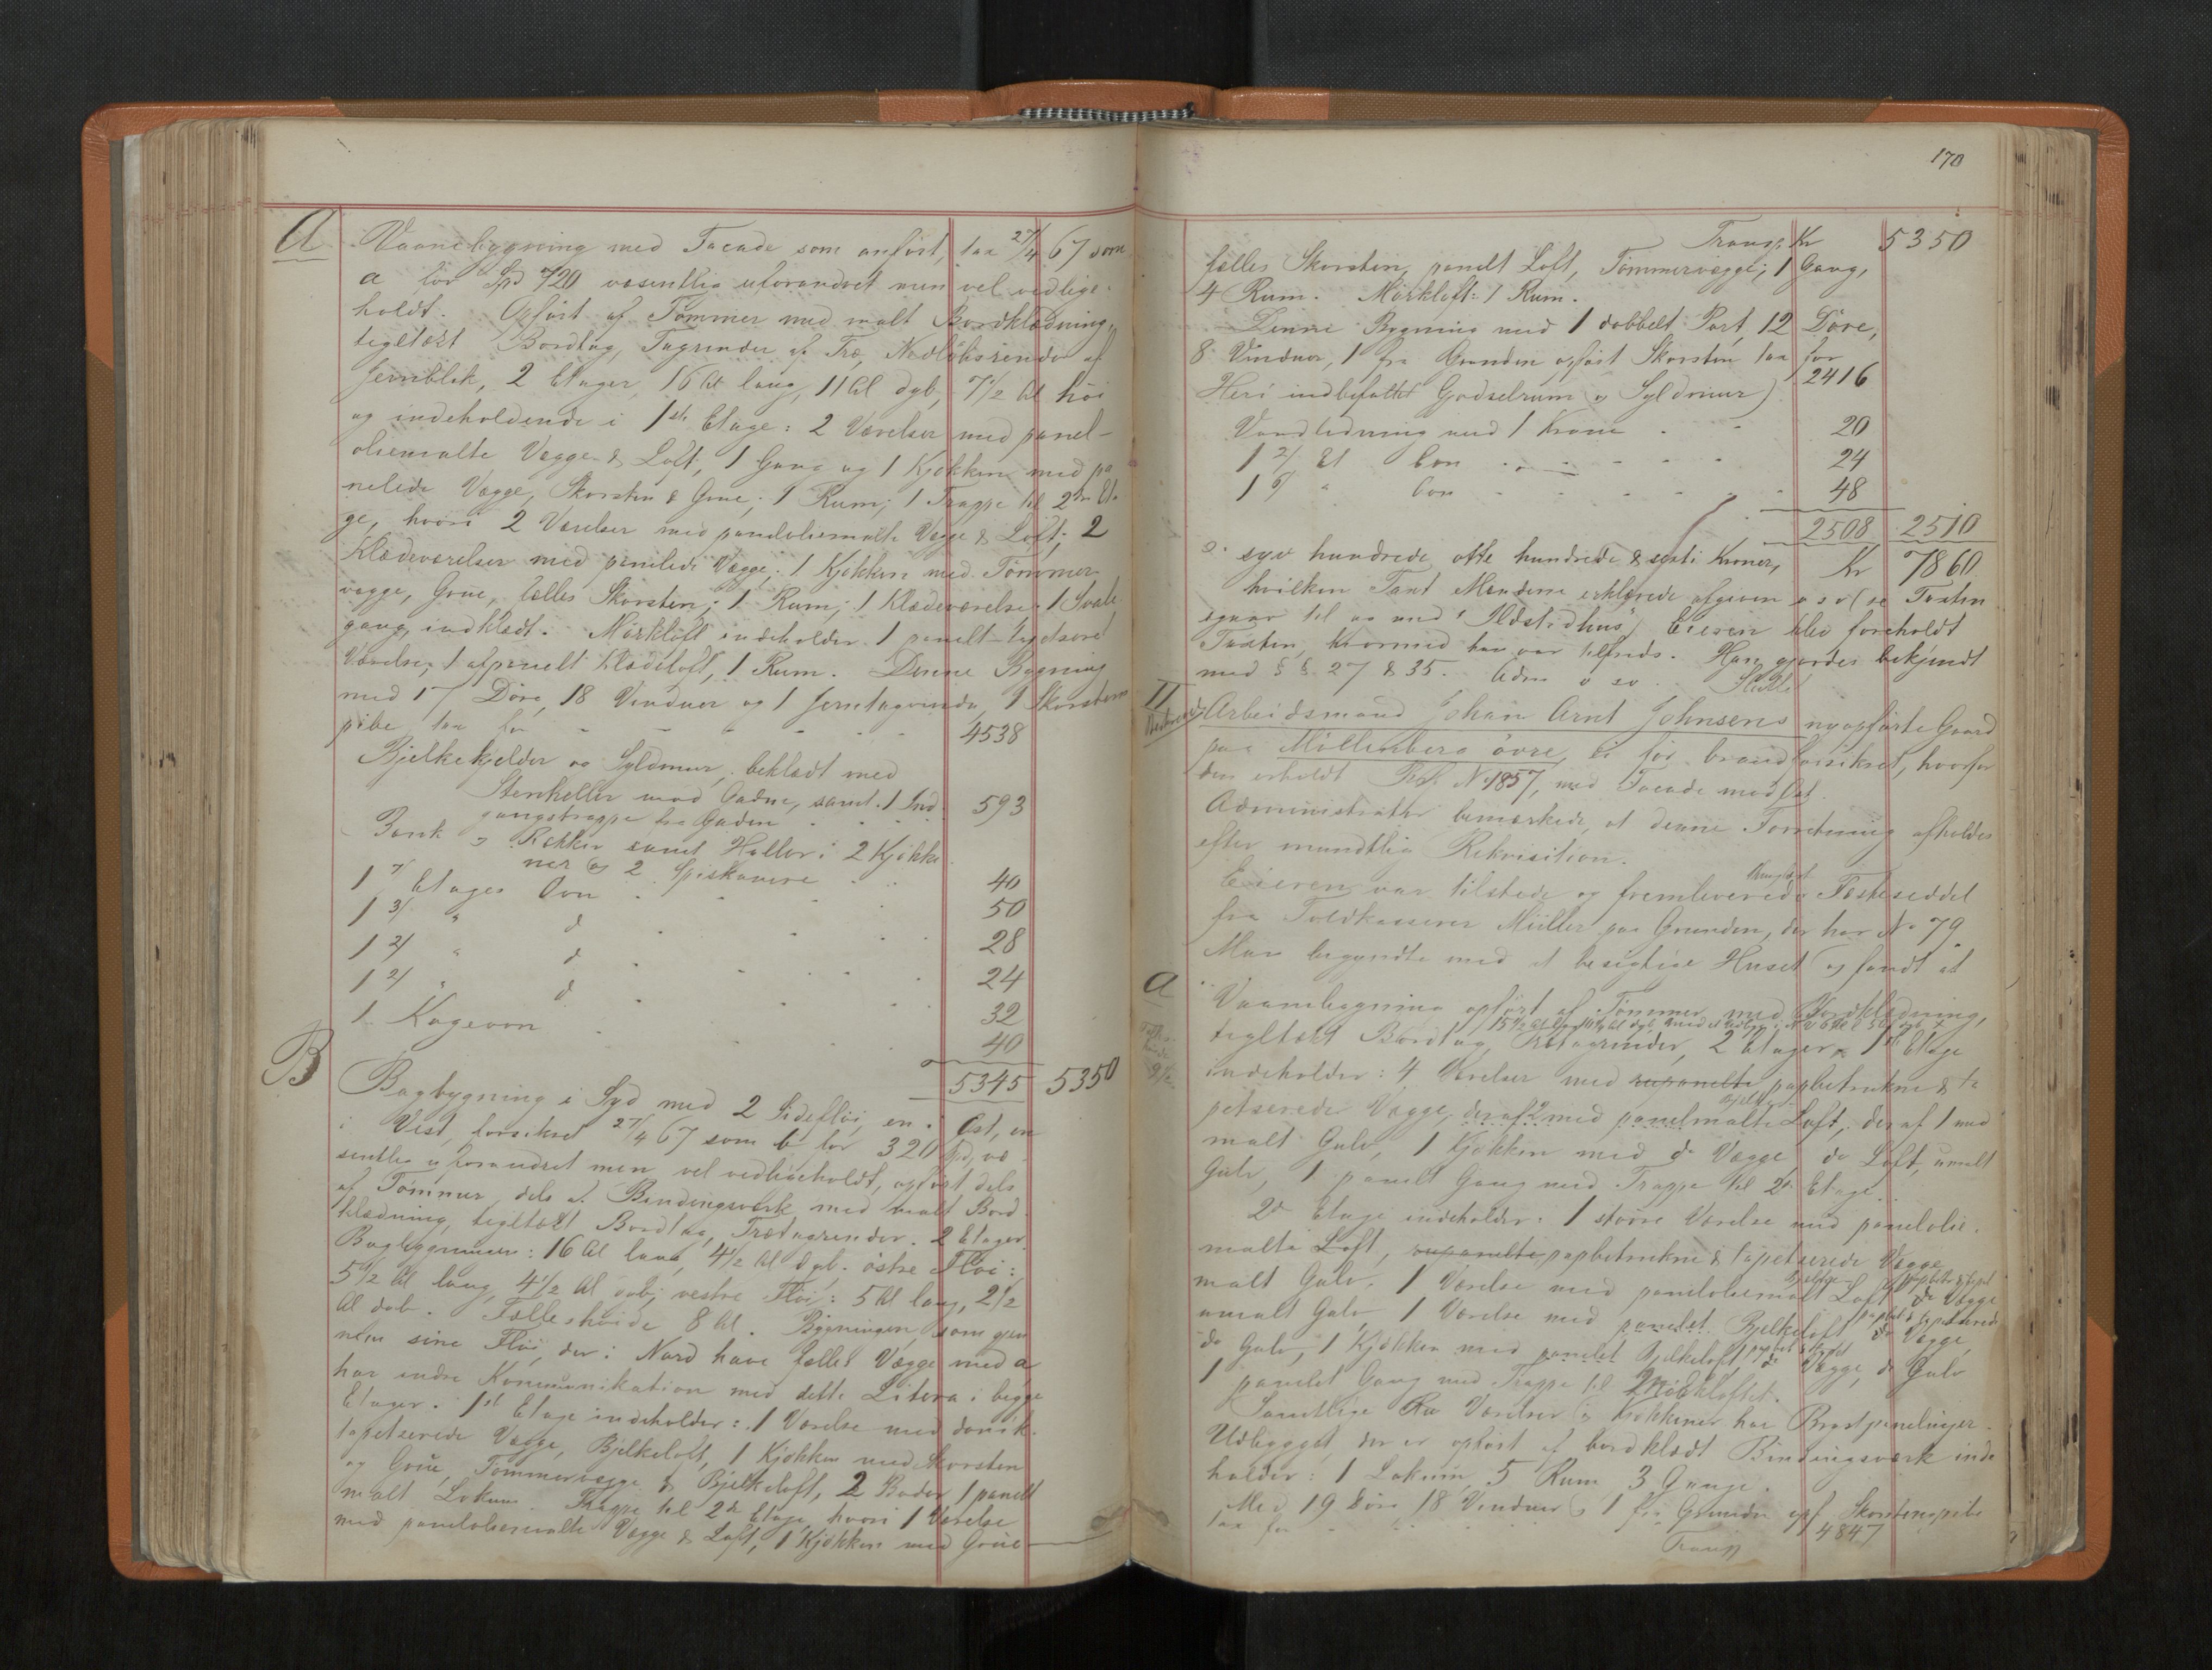 A Vaanebygning med Facade som anført, tax 27/4 67 som
a for Spd 720 væsentlig uforandret men vel vedlige-
holdt. Opført af Tømmer med malt Bordklædning,
tegltækt Bordtag, Tagrender af Træ, Nedløbsrender af
Jernblik, 2 Etager, 16 Al lang, 11 Al dyb, 7 1/2 Al høi
og indeholdende i 1ste Etage: 2 Værelser med panel-
oliemalte Vægge & Loft, 1 Gang og 1 Kjøkken med pa
nelede Vægge, Skorsten & Grue; 1 Rum; 1 Trappe til 2den Eta
ge, hvori 2 Værelser med paneloliemalte Vægge & Loft; 2
Klædeværelser med panelede Vægge; 1 Kjøkken med Tømmer-
vægge, Grue, fælles Skorsten; 1 Rum; 1 Klædeværelse, 1 Sval-
gang, indklædt. Mørkloft indeholder 1 panelt tapetseret
Værelse, 1 afpanelt Klædeloft, 1 Rum. Denne Bygning
med 17 Døre, 18 Vinduer og 1 Jerntagvindu, 1 Skorstens
pibe tax for - - - - 4538
Bjelkekjelder og Syldmur, beklædt med
Stenheller mod Gaden, samt 1 Ind
gangstrappe fra Gaden 593
Bænk og Rækker samt Hylder i 2 Kjøkke
ner og 2 Spiskamre 40
1 7/ Etages Ovn 50
1 3/ " d 28
1 2/ " d 24
1 2/ " d 32
1 Kogeovn 40
5345 5350
B Bagbygning i Syd med 2 Sidefløi, en i Øst, en
i Vest, forsikret 27/4 67 som b for 320 Spd, væ
sentlig uforandret men vel vedligeholdt, opført dels
af Tømmer, dels af Bindingsværk med malt Bord
klædning, tegltækt Bordtag, Trætagrender. 2 Etager.
Bagbygningen: 16 Al lang, 4 1/2 Al dyb. østre Fløi:
5 1/2 Al lang, 4 1/2 Al dyb; vestre Fløi: 5 Al lang, 2 1/2
Al dyb. Fælleshøide 8 Al. Bygningen, som gjen
nem sine Fløi, der i Nord have fælles Vægge med a
har indre Kommunikation med dette Litera i begge
Etager. 1ste Etage indeholder: 1 Værelse med
tapetserede Vægge, Bjelkeloft, 1 Kjøkken med Skorsten
og Grue, Tømmervægge & Bjelkeloft, 2 Boder, 1 panelt
malt Lokum. Trappe til 2den Etage, hvori 1 Værelse
med paneloliemalte Vægge & Loft, 1 Kjøkken med Grue
170
Transp. Kr 5350
fælles Skorsten, panelt Loft, Tømmervægge; 1 Gang,
4 Rum. Mørkloft: 1 Rum.
Denne Bygning med 1 dobbelt Port, 12 Døre,
8 Vinduer, 1 fra Grunden opført Skorsten tax for
Heri indbefattet Gjødselrum og Syldmur) 2416
Vandledning med 1 Krane 20
1 2/ Et Ovn 24
1 5/ " Ovn 48
2508 2510
syv hundrede otte hundrede & sexti Kroner, Kr 7860
hvilken Taxt Mændene erklærede afgiven o s v (se Taxten
ovenfor til og med "Ildstedhus") Eieren blev foreholdt
Taxten, hvormed han var tilfreds. Han gjordes bekjendt
med §§ 27 & 35. Adm o s v. Sluttet
II Arbeidsmand Johan Arnt Johnsens nyopførte Gaard
paa Møllenberg øvre, ei før brandforsikret, hvorfor
den erholdt Fors. No 1857, med Facade mod Øst.
Administrator bemærkede, at denne Forretning afholdes
efter mundtlig Rekvisition.
Eieren var tilstede og fremleverede Fæsteseddel
fra Toldkasserer Müller paa Grunden, der har No 79.
Man begyndte med at besigtige Huset og fandt at
a Vaanebygning opført af Tømmer med Bordklædning,
tegltækt Bordtag, Trætagrender, 2 Etager. 1ste Etage
indeholder: 4 Værelser med rupanelte papbetrukne & ta
petserede Vægge, deraf 2 med panelmalte Loft, deraf 1 med
malt Gulv, 1 Kjøkken med do Vægge, do Loft, umalt
Gulv, 1 panelt Gang med Trappe til 2den Etage.
2den Etage indeholder: 1 større Værelse med panelolie-
malte Loft, rupanelte papbetrukne & tapetserede Vægge
malt Gulv, 1 Værelse med paneloliemalt Loft, do Vægge
umalt Gulv, 1 Værelse med panelet Bjelkeloft, do Vægge,
do Gulv, 1 Kjøkken med panelet Bjelkeloft, do Vægge, do Gulv
1 panelet Gang med Trappe til Mørkloftet.
Samtlige Værelser og Kjøkkener har Brystpanelinger.
Udbygget, der er opført af bordklædt Bindingsværk inde
holder: 1 Lokum, 5 Rum, 3 Gange.
Med 19 Døre, 18 Vinduer, 1 fra Grunden opf Skorstenspibe
tax for 4847
Transp